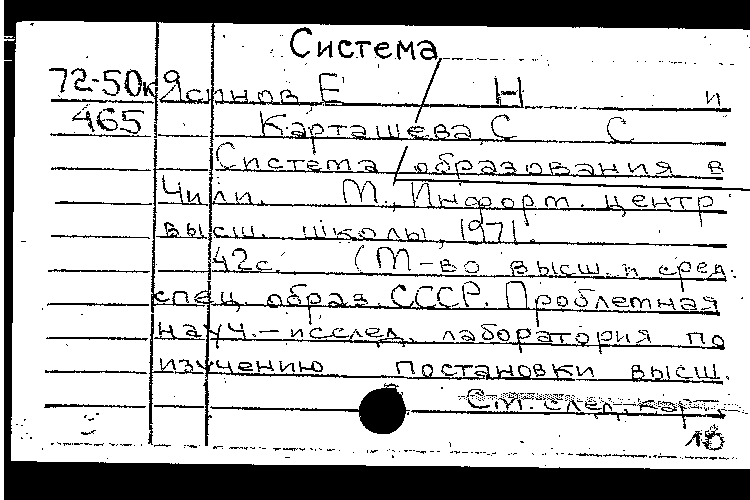 Система
72-50к Ясинов Е Н и
465 Карташева С С
Система образования в
Чили. М., Информ. центр
высш. школы, 1971.
42с. (М-во высш. и сред.
спец. образ. СССР. Проблемная
науч.-исслед. лаборатория по
изучению постановки высш.
См. след. карт.
10